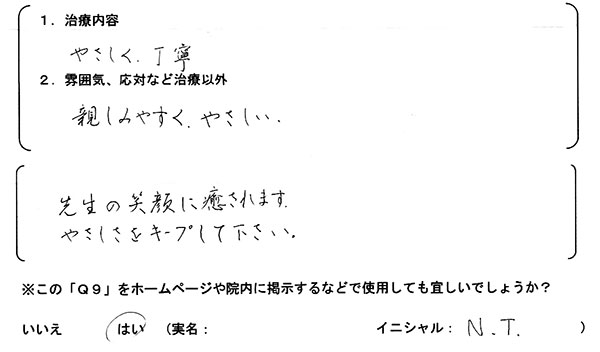 1．治療内容
やさしく、丁寧
2．雰囲気、応対など治療以外
親しみやすく、やさしい．
先生の笑顔に癒されます．
やさしさをキープして下さい。
※この「Q9」をホームページや院内に掲示するなどで使用しても宜しいでしょうか？
いいえ はい （実名： イニシャル： N．T． ）